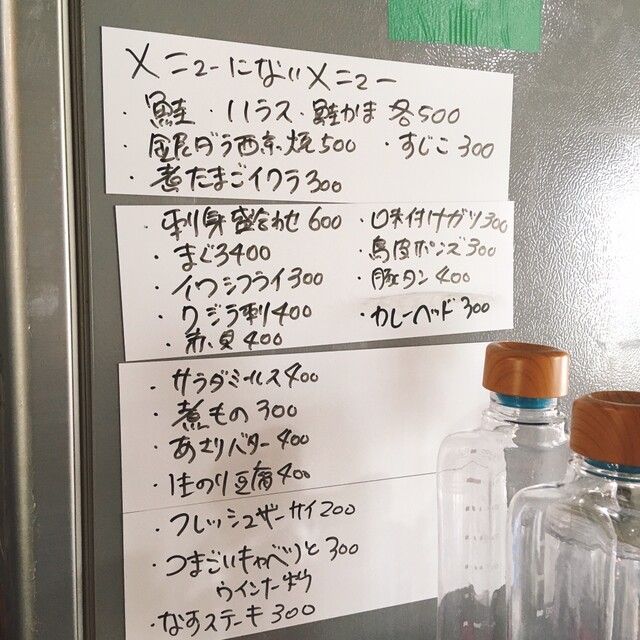 メニューにないメニュー
・鮭・ハラス・鮭かま 各500
銀ダラ西京焼500 ・すじこ 300
・煮たまごイクラ300
・刺身盛合わせ 600 ・味付けガツ300
・まぐろ400 ・鳥皮ポンズ300
・イワシフライ300 ・豚タン 400
・クジラ刺400 ・カレーヘッド 300
・赤貝 400
・サラダミルス400
・煮もの 300
・あさりバター 400
・生のり豆腐400
・フレッシュザーサイ200
・つまごいキャベツと 300
ウインナー炒
・なすステーキ 300